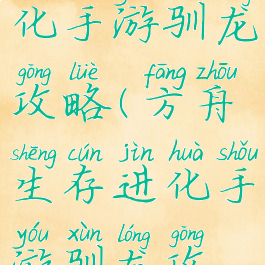 化手游驯龙
gōng lüè fāng zhōu
攻略(方舟
shēng cún jìn huà shǒu
生存进化手
yóu xùn lóng gōng
游驯龙攻